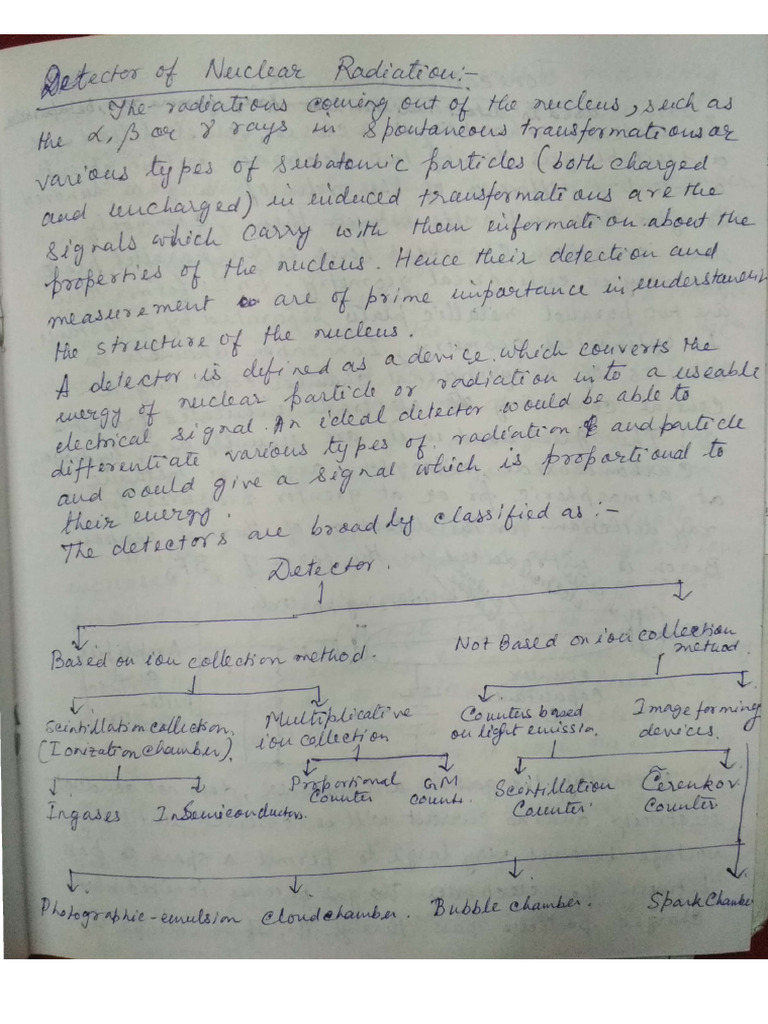 Detector of Nuclear Radiation:-
The radiations coming out of the nucleus, such as
the α, β or γ rays in spontaneous transformations or
various types of subatomic particles (both charged
and uncharged) in induced transformations are the
signals which carry with them information about the
properties of the nucleus. Hence their detection and
measurement are of prime importance in understanein
the structure of the nucleus.
A detector is defined as a device which converts the
energy of nuclear particle or radiation in to a useable
electrical signal. An ideal detector would be able to
differentiate various types of radiation and particle
and would give a signal which is proportional to
their energy.
The detectors are broadly classified as :-
Detector.
Based on ion collection method.
Not Based on ion collection method.
Scintillation collection. (Ionization chamber).
Multiplicative ion collection
Counters based on light emission.
Image forming devices.
In gases
In Semiconductors.
Proportional Counter
GM Counter.
Scintillation Counter.
Čerenkov Counter
Photographic-emulsion
Cloud chamber.
Bubble chamber.
Spark Chambe